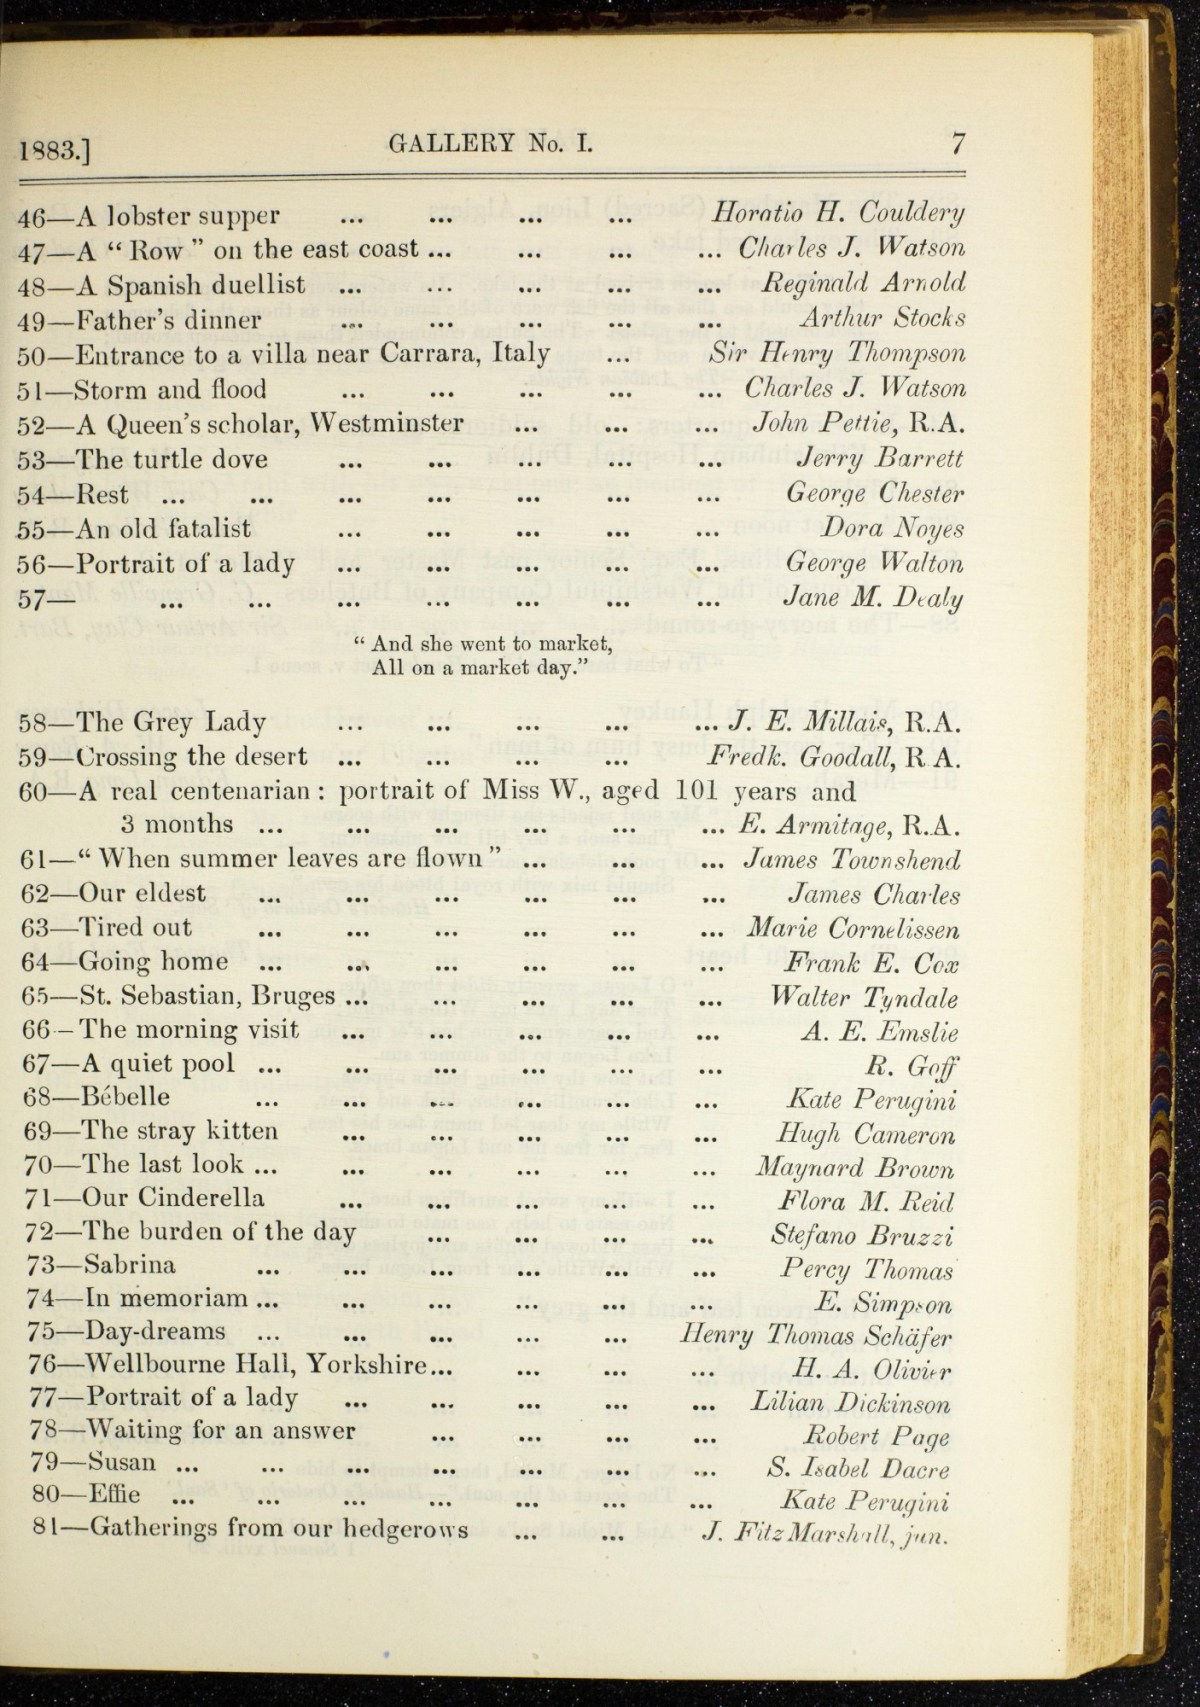 1883.] GALLERY No. I. 7
46—A lobster supper ... ... ... ... Horatio H. Couldery
47—A “ Row ” on the east coast ... ... ... ... Charles J. Watson
48—A Spanish duellist ... ... ... ... ... Reginald Arnold
49—Father's dinner ... ... ... ... ... Arthur Stocks
50—Entrance to a villa near Carrara, Italy ... Sir Henry Thompson
51—Storm and flood ... ... ... ... ... Charles J. Watson
52—A Queen's scholar, Westminster ... ... ... John Pettie, R.A.
53—The turtle dove ... ... ... ... ... Jerry Barrett
54—Rest ... ... ... ... ... ... ... George Chester
55—An old fatalist ... ... ... ... ... Dora Noyes
56—Portrait of a lady ... ... ... ... ... George Walton
57— ... ... ... ... ... ... ... Jane M. Dealy
“ And she went to market,
All on a market day.”
58—The Grey Lady ... ... ... ... ... J. E. Millais, R.A.
59—Crossing the desert ... ... ... ... Fredk. Goodall, R A.
60—A real centenarian : portrait of Miss W., aged 101 years and
3 months ... ... ... ... ... ... E. Armitage, R.A.
61—“ When summer leaves are flown ” ... ... ... James Townshend
62—Our eldest ... ... ... ... ... ... James Charles
63—Tired out ... ... ... ... ... ... Marie Cornelissen
64—Going home ... ... ... ... ... ... Frank E. Cox
65—St. Sebastian, Bruges ... ... ... ... ... Walter Tyndale
66–The morning visit ... ... ... ... ... A. E. Emslie
67—A quiet pool ... ... ... ... ... ... R. Goff
68—Bébelle ... ... ... ... ... ... Kate Perugini
69—The stray kitten ... ... ... ... ... Hugh Cameron
70—The last look ... ... ... ... ... ... Maynard Brown
71—Our Cinderella ... ... ... ... ... Flora M. Reid
72—The burden of the day ... ... ... ... Stefano Bruzzi
73—Sabrina ... ... ... ... ... ... Percy Thomas
74—In memoriam ... ... ... ... ... ... E. Simpson
75—Day-dreams ... ... ... ... ... Henry Thomas Schäfer
76—Wellbourne Hall, Yorkshire... ... ... ... H. A. Olivier
77—Portrait of a lady ... ... ... ... ... Lilian Dickinson
78—Waiting for an answer ... ... ... ... Robert Page
79—Susan ... ... ... ... ... ... ... S. Isabel Dacre
80—Effie ... ... ... ... ... ... ... Kate Perugini
81—Gatherings from our hedgerows ... ... J. Fitz Marshall, jun.